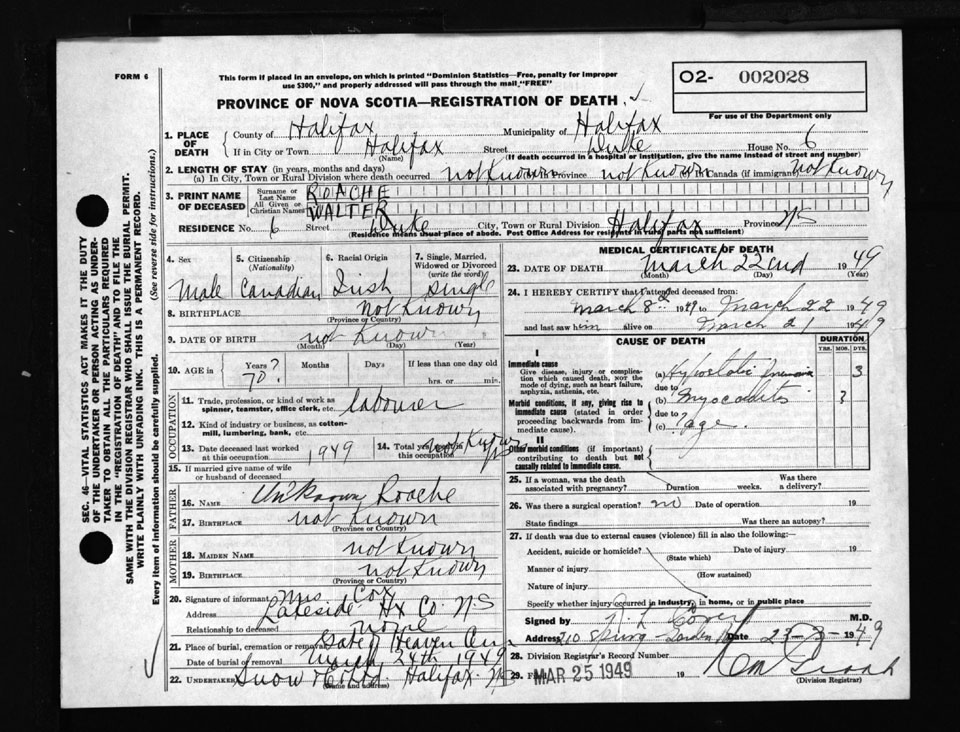 FORM 6
This form if placed in an envelope, on which is printed "Dominion Statistics—Free, penalty for improper
use $300," and properly addressed will pass through the mail "FREE"
O2- 002028
For use of the Department only
PROVINCE OF NOVA SCOTIA—REGISTRATION OF DEATH
1. PLACE OF DEATH
County of Halifax Municipality of Halifax
If in City or Town Halifax Street Duke House No. 6
(Name) (If death occurred in a hospital or institution, give the name instead of street and number)
2. LENGTH OF STAY (in years, months and days)
(a) In City, Town or Rural Division where death occurred not Known Province not Known Canada (if immigrant) not Known
3. PRINT NAME OF DECEASED
Surname or Last Name ROACHE
All Given or Christian Names WALTER
RESIDENCE No. 6 Street Duke City, Town or Rural Division Halifax Province NS
(Residence means usual place of abode. Post Office Address for residents in rural parts not sufficient)
4. Sex
Male
5. Citizenship (Nationality)
Canadian
6. Racial Origin
Irish
7. Single, Married, Widowed or Divorced (write the word)
Single
8. BIRTHPLACE not Known
(Province or Country)
9. DATE OF BIRTH not Known
(Month) (Day) (Year)
10. AGE in Years? Months Days If less than one day old
70. hrs. or min.
OCCUPATION
11. Trade, profession, or kind of work as spinner, teamster, office clerk, etc. labourer
12. Kind of industry or business, as cotton-mill, lumbering, bank, etc.
13. Date deceased last worked at this occupation 1949
14. Total years spent in this occupation not Known
15. If married give name of wife or husband of deceased
FATHER
16. NAME Unknown Roache
17. BIRTHPLACE not Known
(Province or Country)
MOTHER
18. MAIDEN NAME not Known
19. BIRTHPLACE not Known
(Province or Country)
20. Signature of informant Mrs Cox
Address Lakeside Hx Co. N.S
Relationship to deceased none
21. Place of burial, cremation or removal Gate of Heaven Cem
Date of burial or removal March 24th 1949
22. UNDERTAKER Snow & Co Ltd. Halifax NS
(Name and address)
MEDICAL CERTIFICATE OF DEATH
23. DATE OF DEATH March 22nd 1949
(Month) (Day) (Year)
24. I HEREBY CERTIFY that I attended deceased from:
March 8th 1949 to March 22 1949
and last saw him alive on March 21 1949
CAUSE OF DEATH
DURATION
YRS. MOS. DYS.
I
Immediate cause
Give disease, injury or complication which caused death, not the mode of dying, such as heart failure, asphyxia, asthenia, etc.
(a) 3
due to
Morbid conditions, if any, giving rise to immediate cause (stated in order proceeding backwards from immediate cause).
(b) Myocarditis ?
due to
(c) ? age.
II
Other morbid conditions (if important) contributing to death but not causally related to immediate cause.
25. If a woman, was the death associated with pregnancy? Duration weeks. Was there a delivery?
26. Was there a surgical operation? no Date of operation 19
State findings Was there an autopsy?
27. If death was due to external causes (violence) fill in also the following:—
Accident, suicide or homicide? Date of injury 19
(State which)
Manner of injury
(How sustained)
Nature of injury
Specify whether injury occurred in industry, in home, or in public place
Signed by M.D.
Address 210 Spring Garden Rd Date 23-3-1949
28. Division Registrar's Record Number
29. Filed MAR 25 1949 19
(Division Registrar)
SEC. 46—VITAL STATISTICS ACT MAKES IT THE DUTY
OF THE UNDERTAKER OR PERSON ACTING AS UNDERTAKER
TO OBTAIN ALL THE PARTICULARS REQUIRED
IN THE "REGISTRATION OF DEATH" AND TO FILE THE
SAME WITH THE DIVISION REGISTRAR WHO SHALL ISSUE THE BURIAL PERMIT.
WRITE PLAINLY WITH UNFADING INK. THIS IS A PERMANENT RECORD.
Every item of information should be carefully supplied. (See reverse side for instructions.)